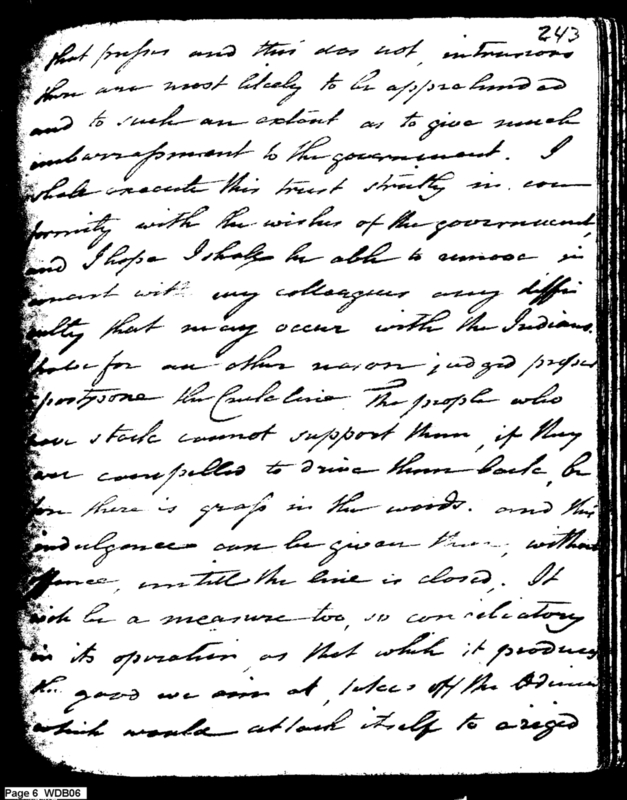 243
that presses and this does not, intrusions
there are most likely to be apprehended
and to such an extent as to give much
imbarrassment to the government. I
shall execute this trust strictly in con
formity with the wishes of the government,
and I hope I shall be able to remove in
concert with my colleagues any diffi
culty that may occur with the Indians.
I have for an other reason judged proper
postpone the Creek line The people who
have stock cannot support them, if they
are compelled to drive them back, be
fore there is grass in the woods. and this
indulgence can be given them, without
offence, untill the line is closed. It
will be a measure too, so conciliatory
in its operation, as that while it produces
the good we aim at, takes off the odium
which would attach itself to a riged
Page 6 WDB06